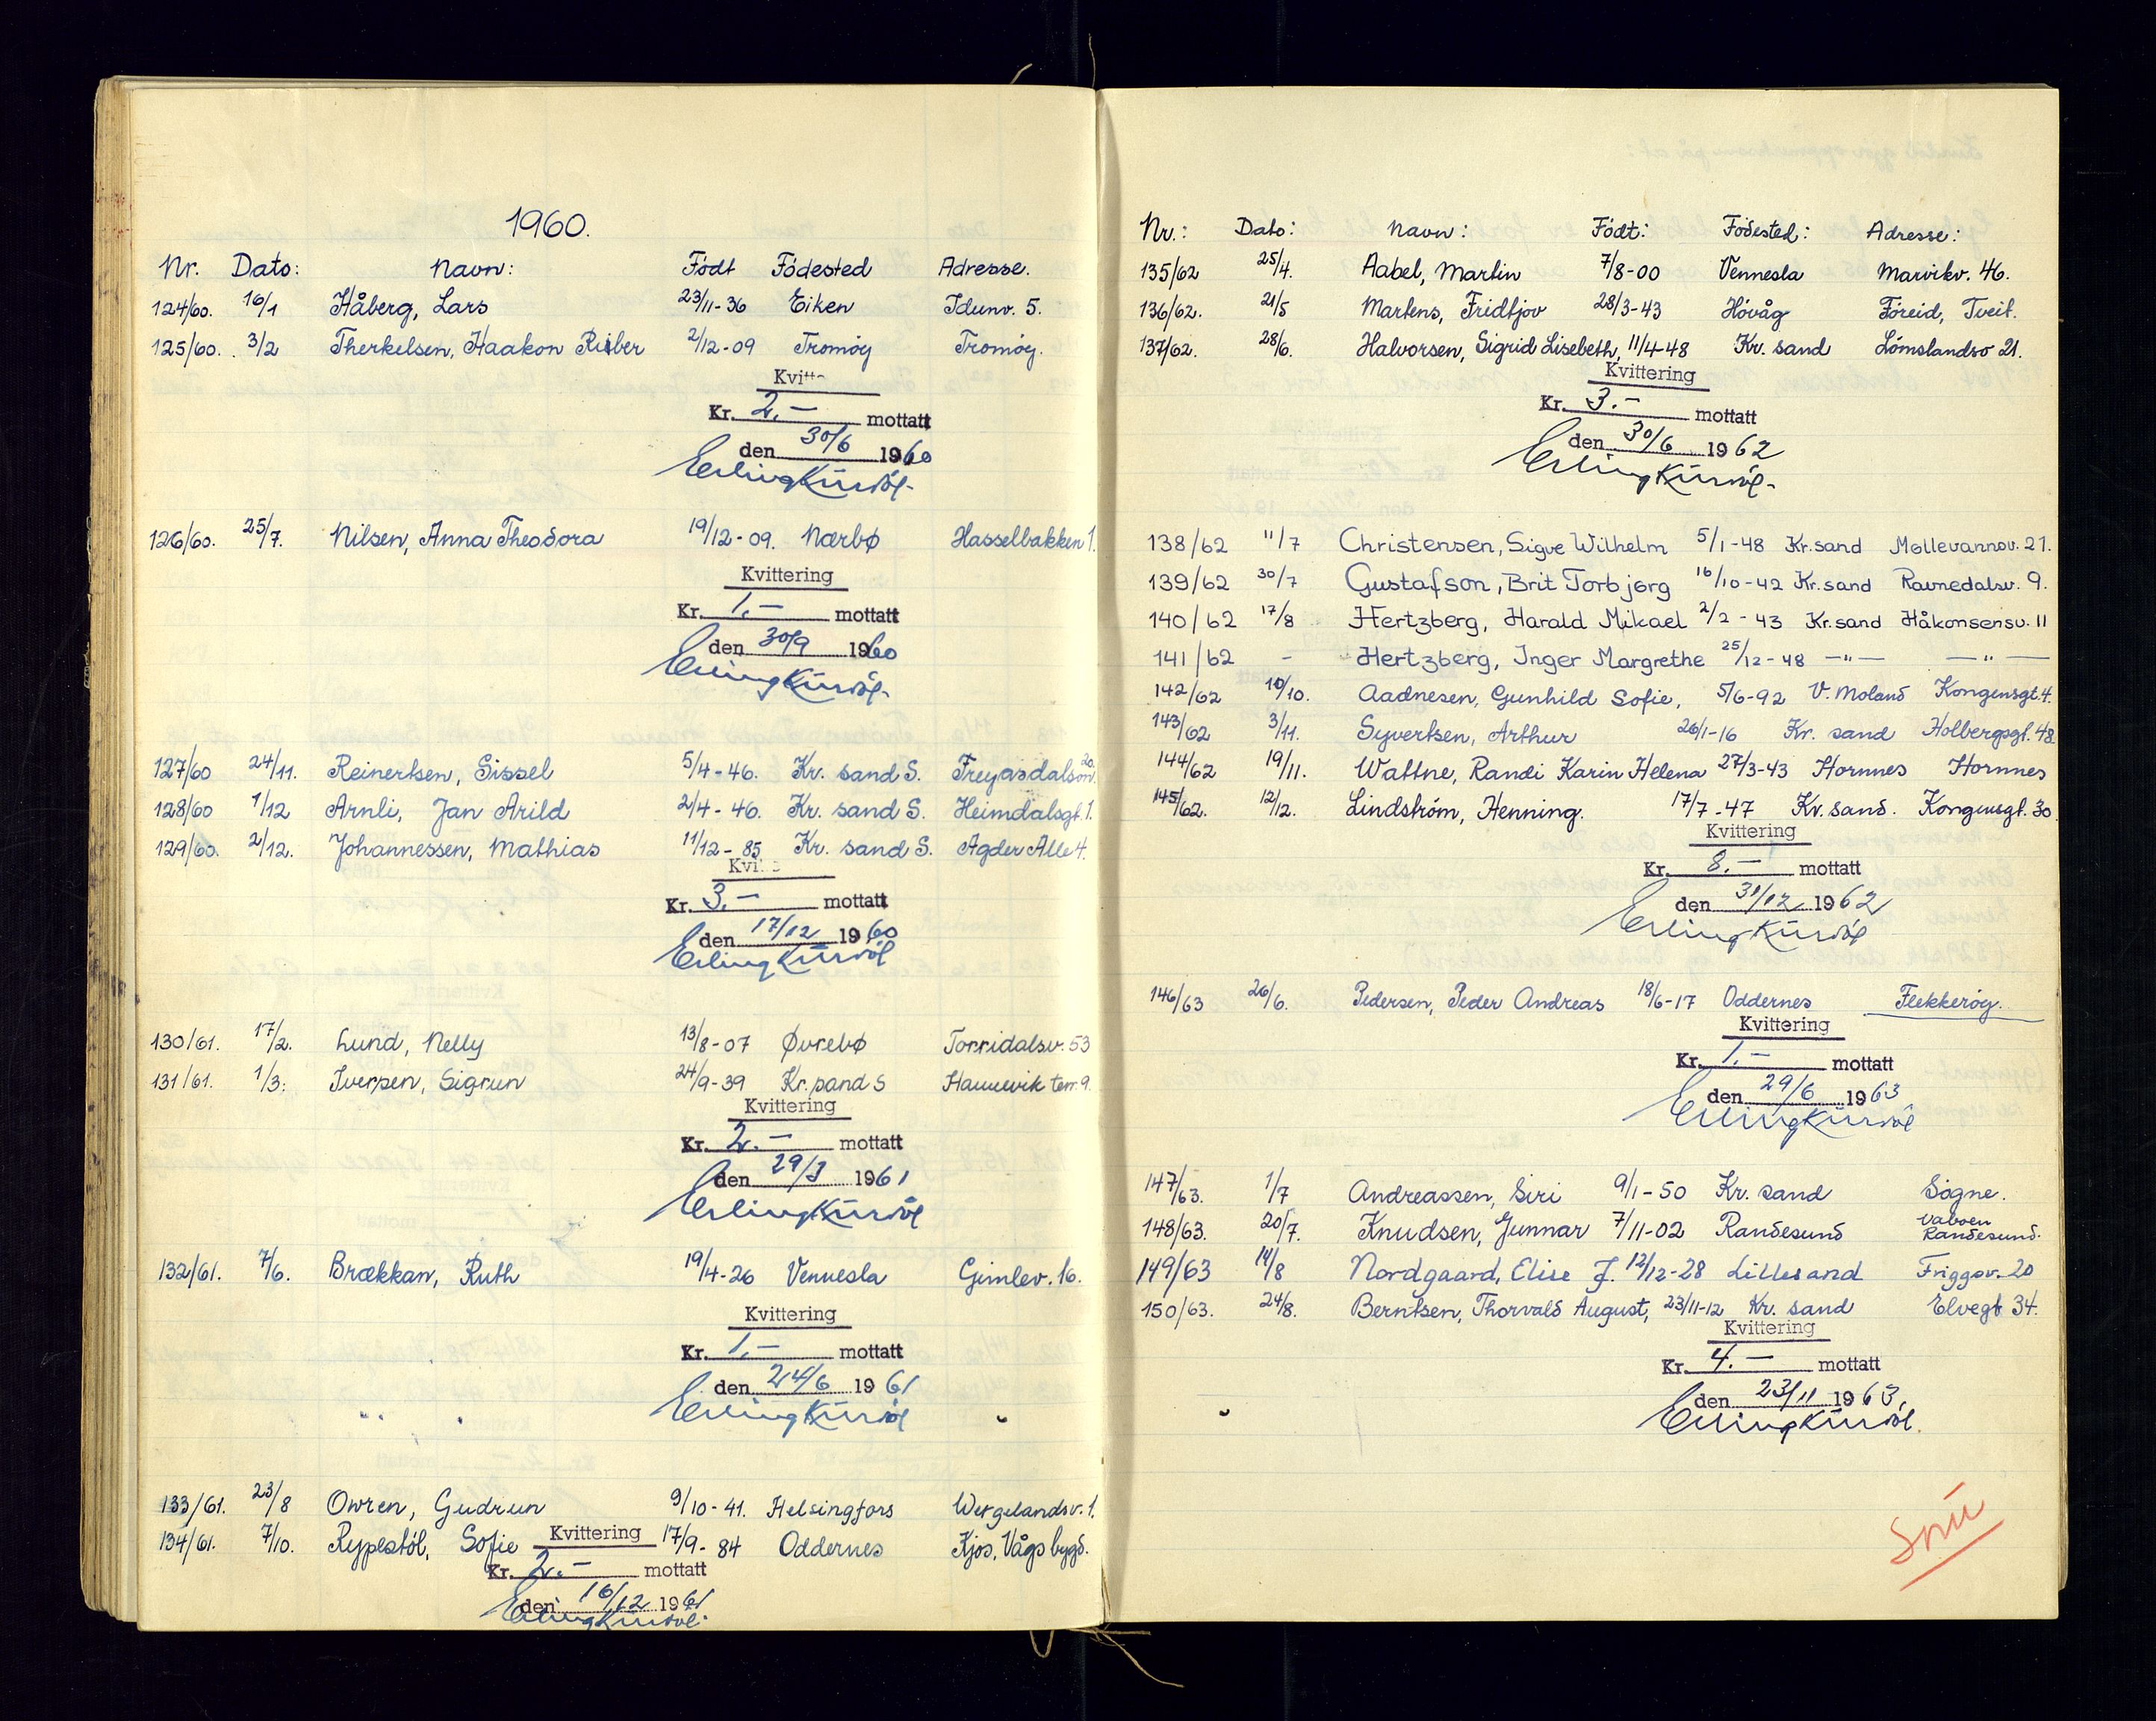 1960.
Nr. Dato: Navn: Født Fødested Adresse.
124/60. 16/1 Håberg, Lars 23/11-36 Eiken Idunv. 5.
125/60. 3/2 Therkelsen, Haakon Riber 2/12-09 Tromöy Tromöy.
Kvitt
Kr. 2.- mottatt
den 30/6 1960
Erling Kürsöl-
126/60. 25/7. Nilsen, Anna Theodora 19/12-09. Nærbø Hasselbakken 1.
Kvittering
Kr. 1.- mottatt
den 30/9 1960
Erling Kürsöl-
127/60 24/11. Reinertsen, Sissel 5/4-46. Kr. sand S. 20.
128/60 1/12 Arnli, Jan Arild 2/4-46. Kr. sand S. Heimdalsgt. 1.
129/60. 2/12. Johannessen, Mathias 11/12-85 Kr. sand S. Agder Alle 4.
Kvi
Kr. 3.- mottatt
den 17/12 1960
Erling Kürsöl
130/61. 17/2. Lund, Nelly 13/8-07 Øvrebø Torridalsv. 53
131/61. 1/3. Iversen, Sigrun 24/9-39 Kr. sand S Hannevik terr. 9.
Kvittering
Kr. 2.- mottatt
den 29/3 1961
Erling Kürsöl
132/61. 7/6. Brækkan, Ruth 19/4-26 Vennesla Gimlev. 16.
Kvittering
Kr. 1.- mottatt
den 24/6 1961
Erling Kürsöl
133/61. 23/8 Owren, Gudrun 9/10-41. Helsingfors Wergelandsv. 1.
134/61. 7/10. Rypestöl, Sofie 17/9-84 Oddernes Kjos, Vågsbygd.
Kvittering
Kr. 2.- mottatt
den 16/12 1961
Erling Kürsöl
Nr.: Dato: Navn: Födt: Födested: Adresse:
135/62 25/4. Aabel, Martin 7/8-00 Vennesla Marvikv. 46.
136/62. 21/5 Martens, Fridtjov 28/3-43 Hövåg Föreid, Tveit.
137/62. 28/6. Halvorsen, Sigrid Lisebeth, 11/4-48 Kr. sand Lömslandsv 21.
Kvittering
Kr. 3.- mottatt
den 30/6 1962
Erling Kürsöl-
138/62 11/7 Christensen, Sigve Wilhelm 5/1-48 Kr.sand Møllevannsv. 21.
139/62 30/7 Gustafson, Brit Torbjørg 16/10-42 Kr.sand Ravnedalsv. 9.
140/62 17/8 Hertzberg, Harald Mikael 2/2-43 Kr.sand Håkonsensv. 11
141/62 - Hertzberg, Inger Margrethe 25/12-48 -"- -"-
142/62 10/10. Aadnesen, Gunhild Sofie, 5/6-92 V. Moland Kongensgt. 4.
143/62 3/11. Syvertsen, Arthur 26/1-16 Kr. sand Holbergsgt. 48.
144/62 19/11. Wattne, Randi Karin Helena 27/3-43 Hornnes Hornnes
145/62. 12/12. Lindström, Henning. 17/7-47 Kr. sand. Kongensgt. 30.
Kvittering
Kr. 8.- mottatt
den 31/12 1962
Erling Kürsöl
146/63 26/6. Pedersen, Peder Andreas 18/6-17 Oddernes Flekkeröy.
Kvittering
Kr. 1.- mottatt
den 29/6 1963
Erling Kürsöl
147/63. 1/7 Andreassen, Siri 9/1-50 Kr. sand Sögne.
148/63. 20/7. Knudsen, Gunnar 7/11-02 Randesund Vaboen Randesund.
149/63 14/8 Nordgaard, Elise J. 12/12-28 Lillesand Friggsv. 20
150/63. 24/8. Berntsen, Thorvald August, 23/11-12 Kr. sand Elvegt. 34.
Kvittering
Kr. 4.- mottatt
den 23/11 1963
Erling Kürsöl.
Snü